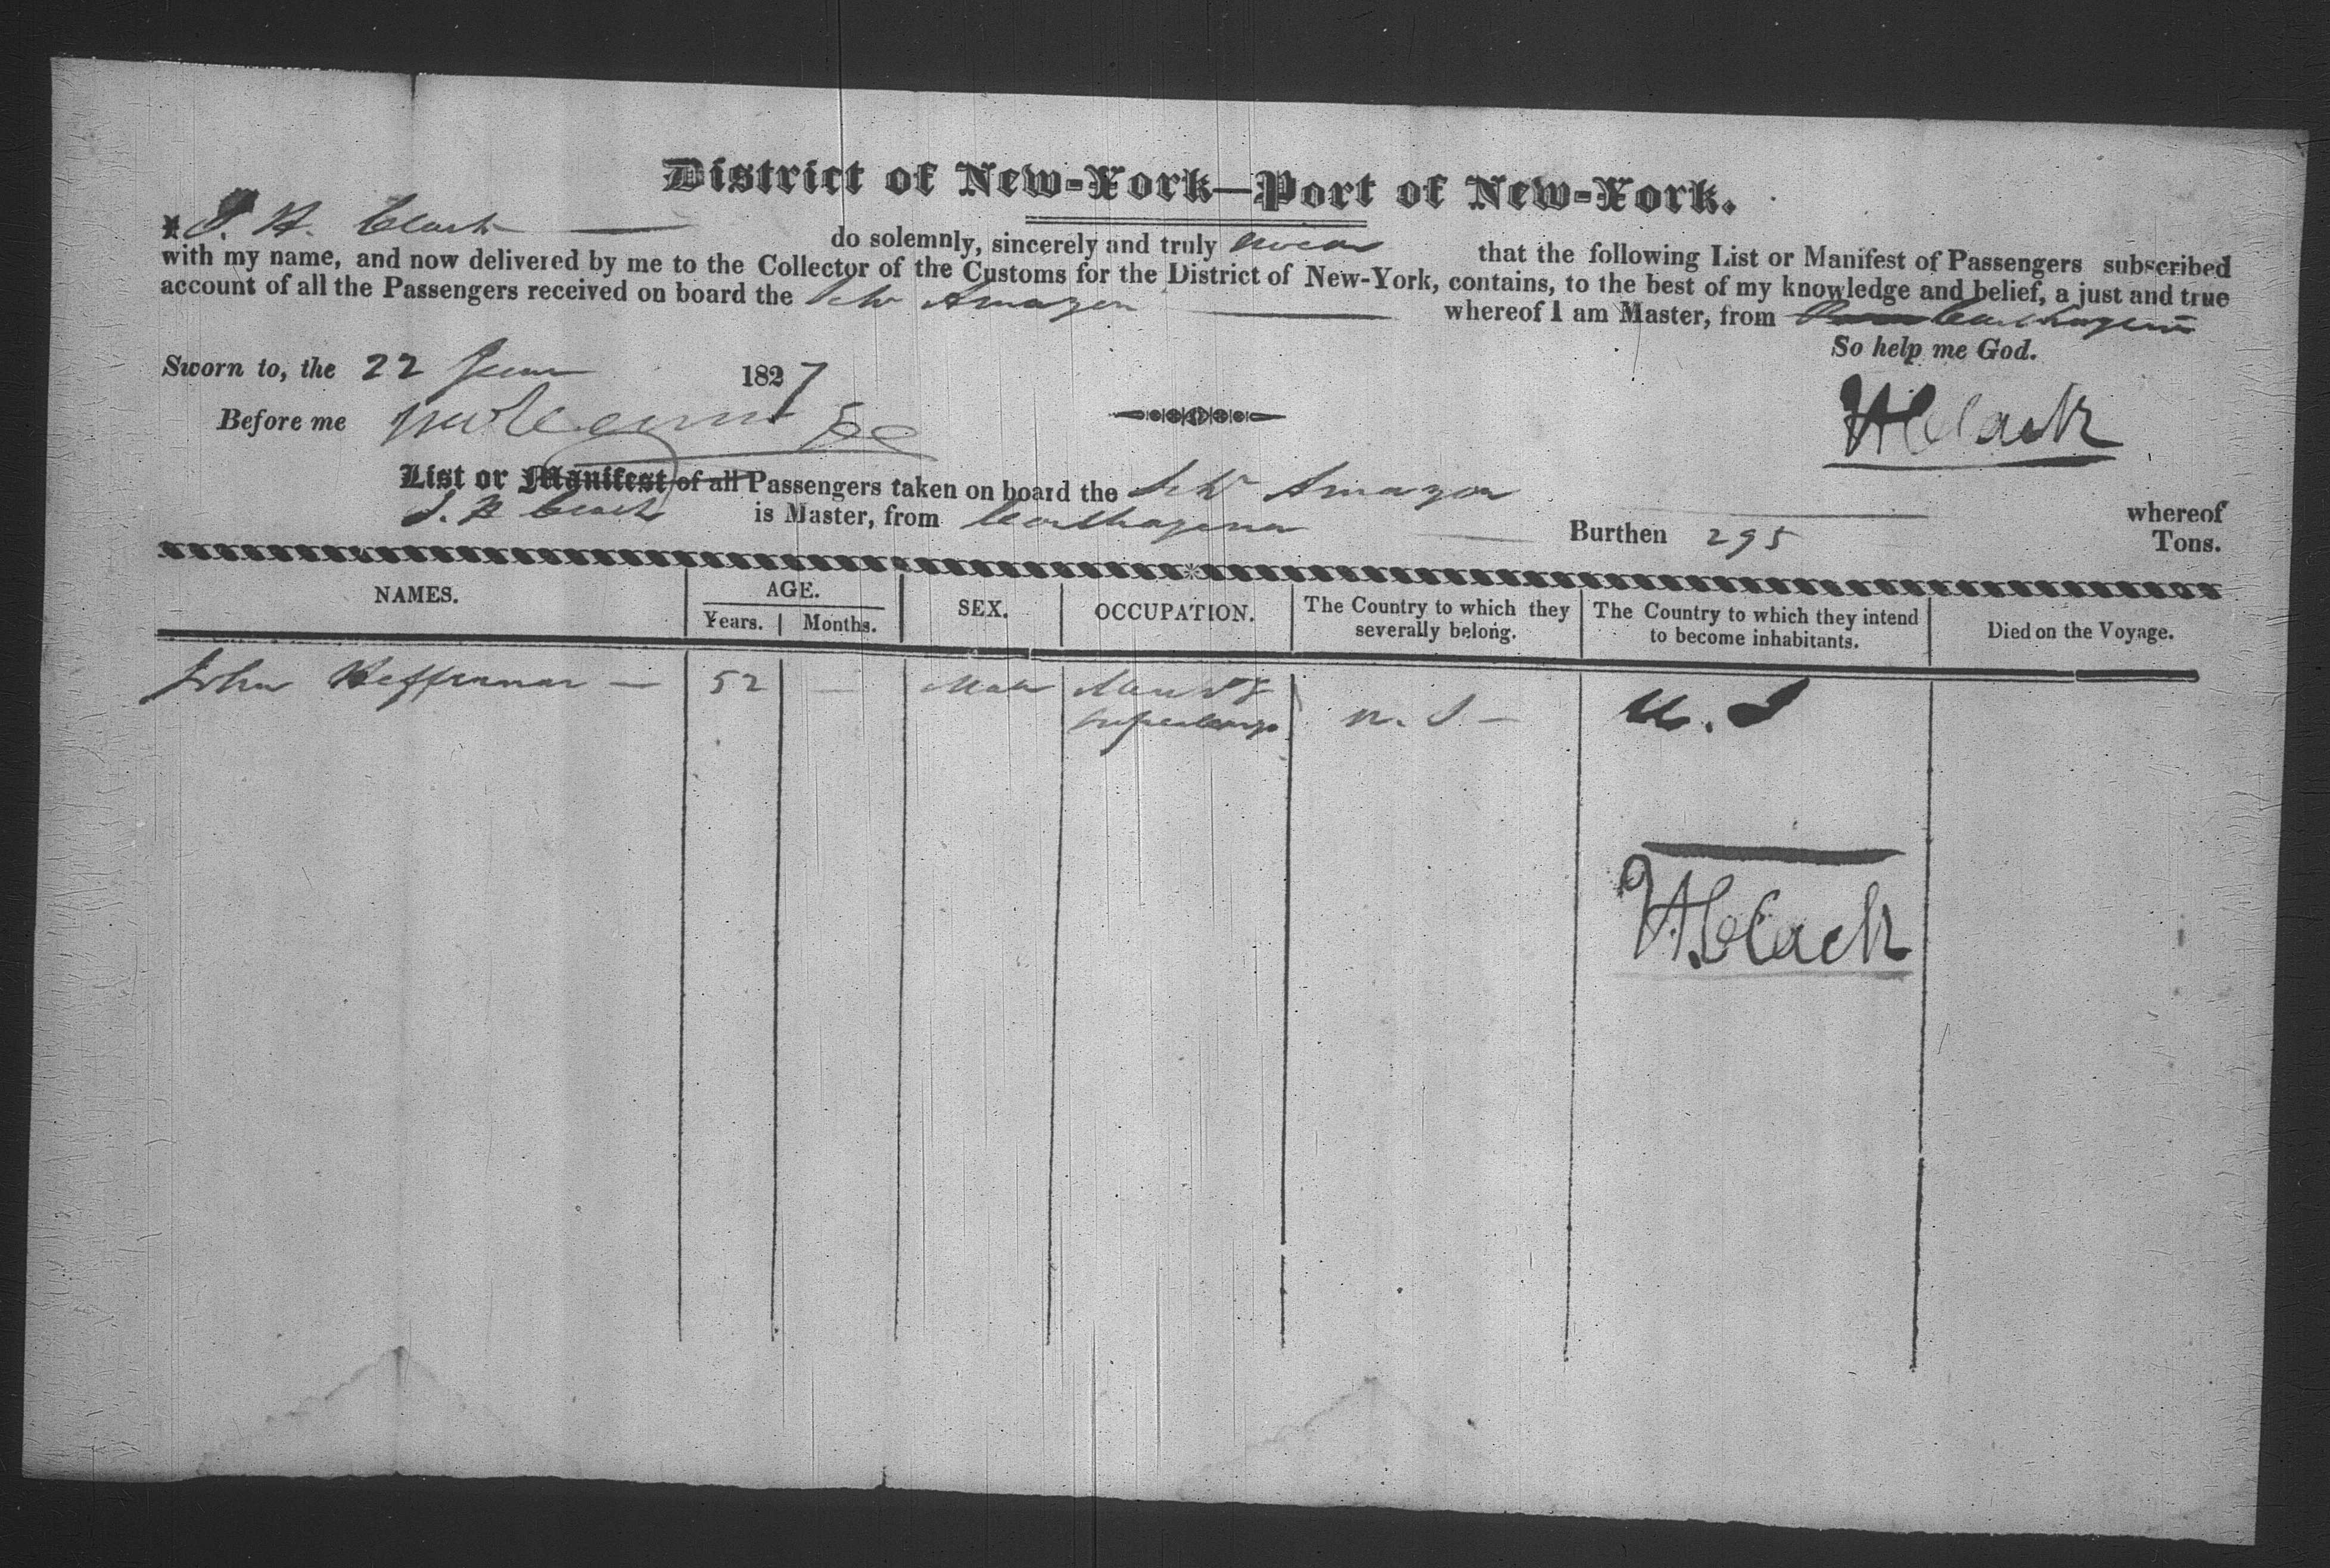 District of New-York—Port of New-York.
I J. H. Clark do solemnly, sincerely and truly swear that the following List or Manifest of Passengers subscribed
with my name, and now delivered by me to the Collector of the Customs for the District of New-York, contains, to the best of my knowledge and belief, a just and true
account of all the Passengers received on board the Schr Amazon whereof I am Master, from Carthagena
So help me God.
Sworn to, the 22 June 1827
Before me
Clark
List or Manifest of all Passengers taken on board the Schr Amazon whereof
J. H Clark is Master, from Carthagena Burthen 295 Tons.
NAMES. AGE. SEX. OCCUPATION. The Country to which they severally belong. The Country to which they intend to become inhabitants. Died on the Voyage.
Years. Months.
John Heffernan — 52 — Male Mercht &
supercargo U. S. — U. S
Clark